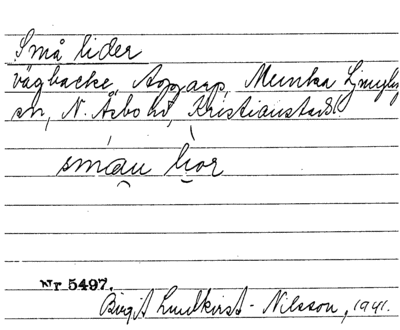 Små lider
vägbacke, Aggarp, Munka Ljungby
sn, N. Åsbo hd, Kristianstads l.
småu líor
Nr 5497.
Birgit Lundkvist-Nilsson, 1941.